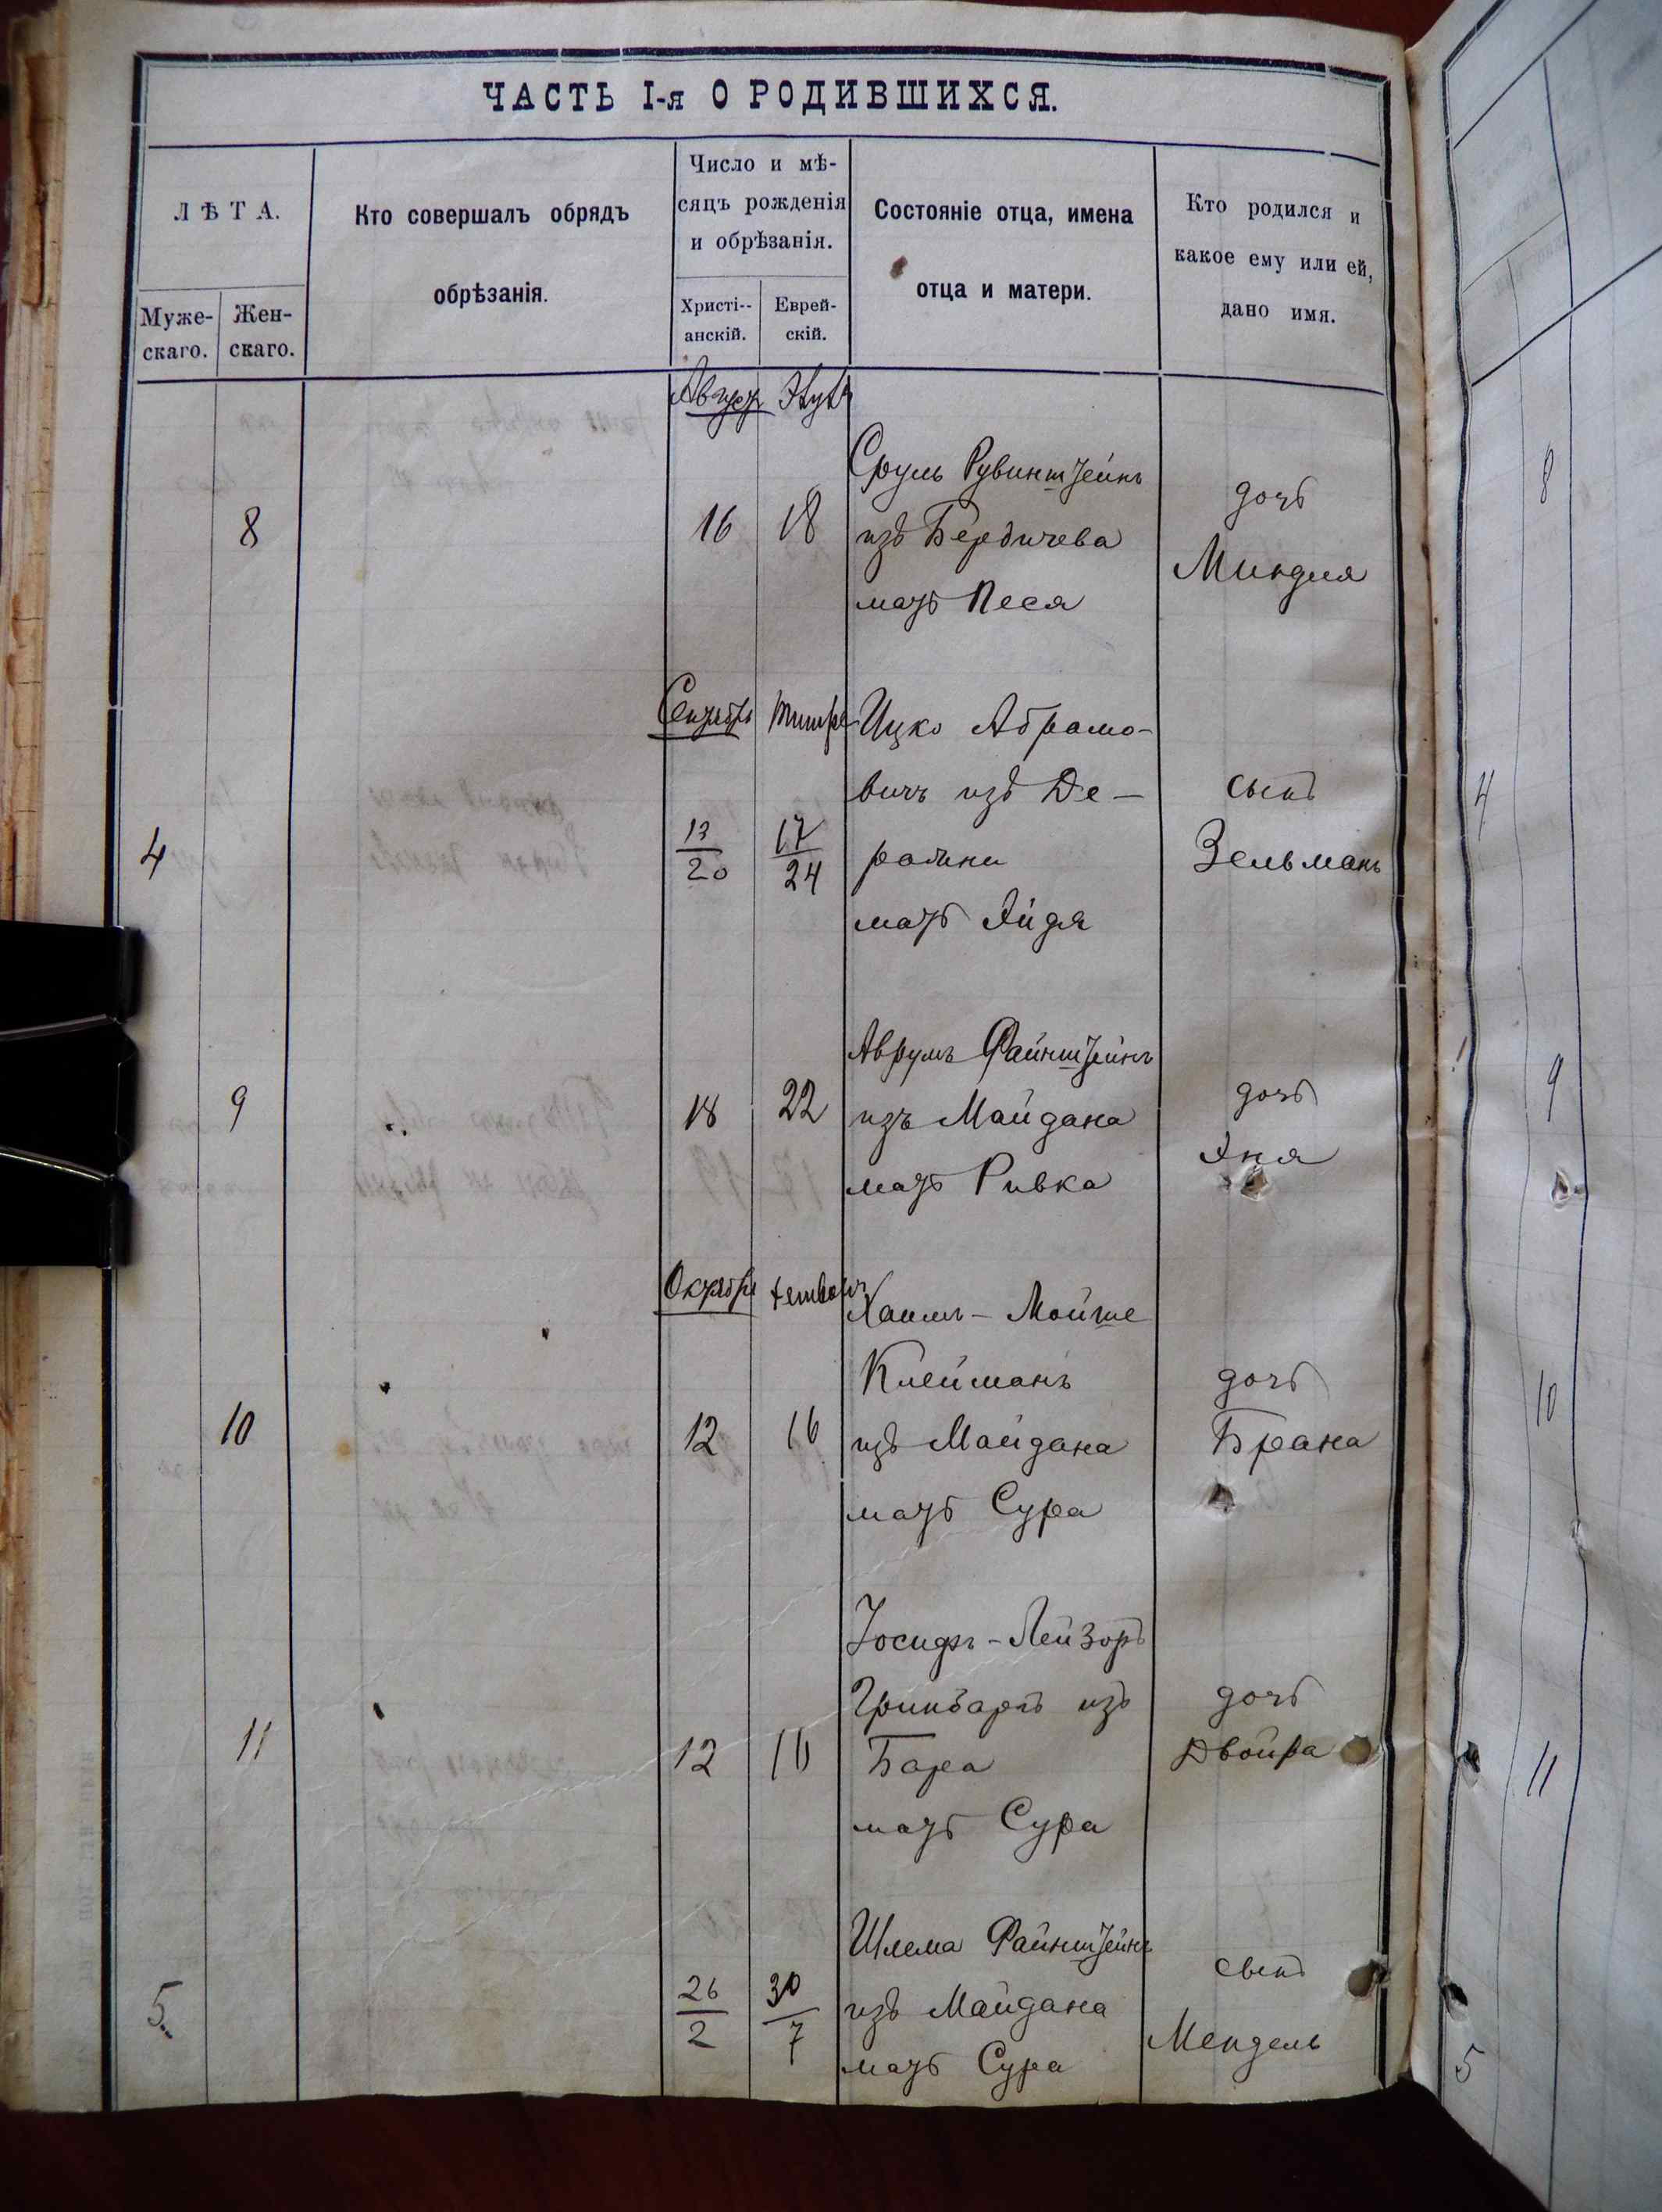 ЧАСТЬ I-я О РОДИВШИХСЯ.
ЛѢТА.
Муже-
скаго.
Жен-
скаго.
Кто совершалъ обрядъ
обрѣзанія.
Число и мѣ-
сяцъ рожденія
и обрѣзанія.
Христі--
анскій.
Еврей-
скій.
Состояніе отца, имена
отца и матери.
Кто родился и
какое ему или ей,
дано имя.
Август
8
16
18
Сруль Рувинштейнъ
изъ Бердичева
мать Песя
дочь
Миндля
8
Сентябрь Тишре
4
13
20
17
24
Ицко Абрамо-
вичъ изъ Де-
ражни
мать Айдя
сынъ
Зельманъ
4
9
18
22
Аврумъ Файнштейнъ
изъ Майдана
мать Ривка
дочь
Эня
9
Октябрь
10
12
16
Хаимъ - Мойше
Клейманъ
изъ Майдана
мать Сура
дочь
Брана
10
11
12
16
Іосифъ - Лейзоръ
Гринбаръ изъ
Бара
мать Сура
дочь
Двойра
11
5
26
2
30
7
Шлема Файнштейнъ
изъ Майдана
мать Сура
сынъ
Мендель
5